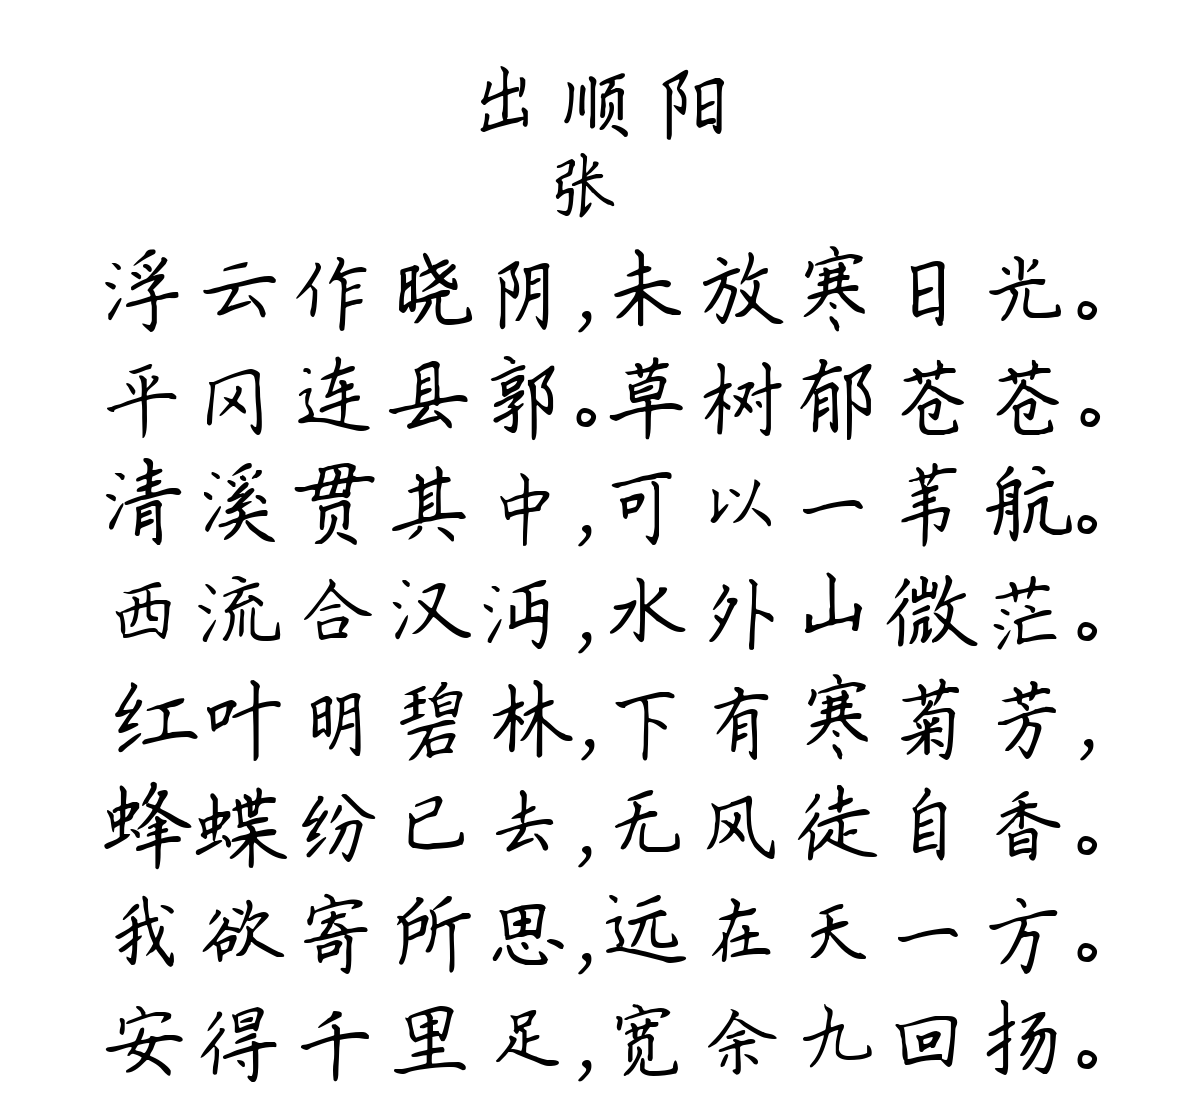 出顺阳
张
浮云作晓阴,未放寒日光。
平冈连县郭。草树郁苍苍。
清溪贯其中,可以一苇航。
西流合汉沔,水外山微茫。
红叶明碧林,下有寒菊芳,
蜂蝶纷已去,无风徒自香。
我欲寄所思,远在天一方。
安得千里足,宽余九回扬。